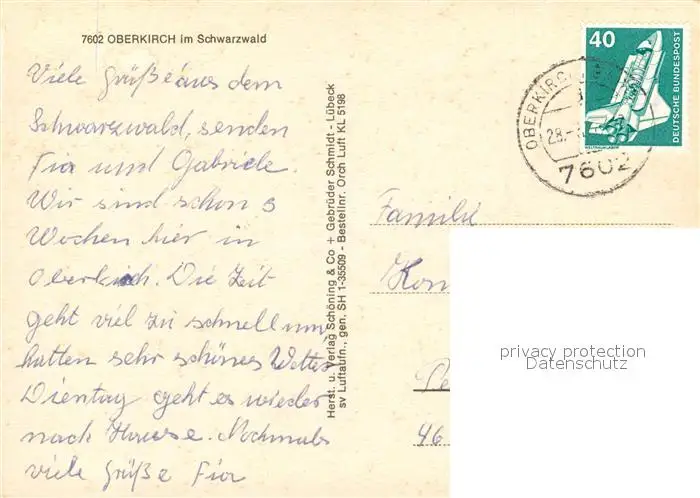 7602 OBERKIRCH im Schwarzwald
Viele Grüße aus dem
Schwarzwald, senden
Fia und Gabriele.
Wir sind schon 3
Wochen hier in
Oberkirch. Die Zeit
geht viel zu schnell um
hatten sehr schönes Wetter
Dienstag geht es wieder
nach Hause. Nochmals
viele Grüße Fia
Herst. u. Verlag Schöning & Co + Gebrüder Schmidt - Lübeck
sv Luftaufn., gen. SH 1-35509 - Bestellnr. Orch Luft KL 5198
40
DEUTSCHE BUNDESPOST
WELTRAUMLABOR
OBERKIRCH
28.
7602
Familie
46
privacy protection
Datenschutz